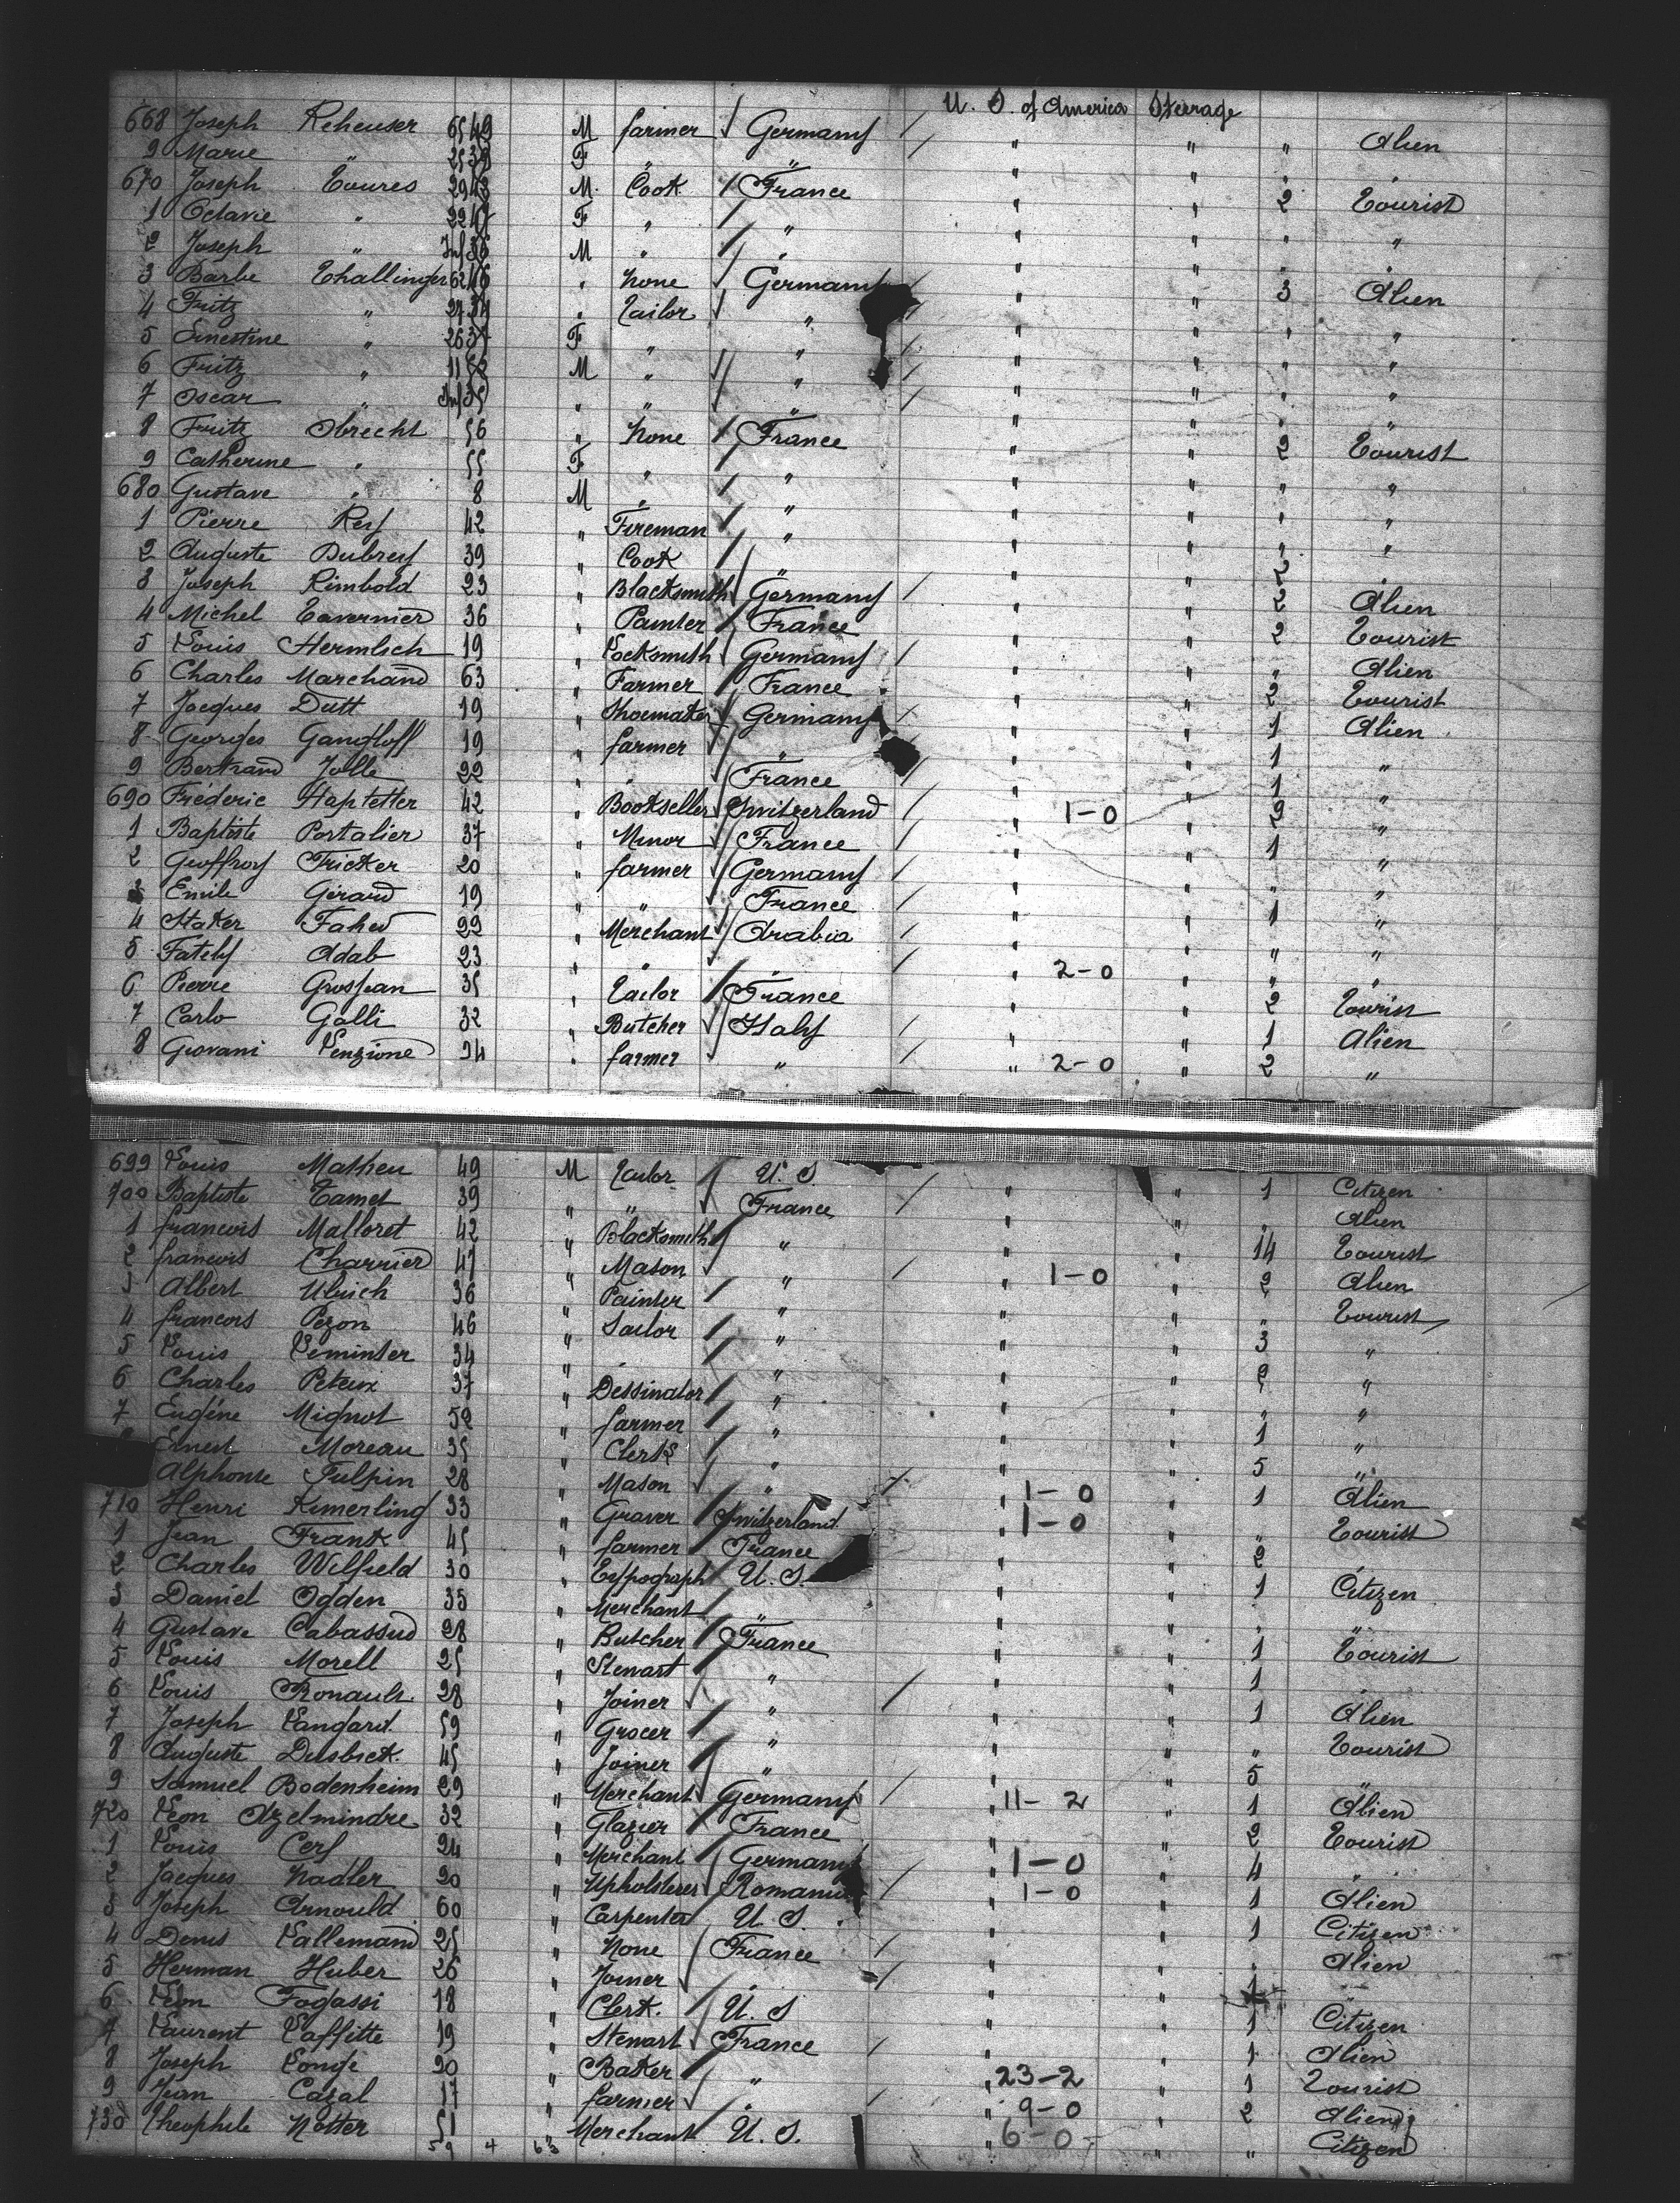 U. S. of America Steerage
668 Joseph Reheuser M farmer Germany " " Alien
9 Marie " F " " " " "
670 Joseph Toures M. Cook France " " 2 Tourist
1 Octavie " F " " " " " "
2 Joseph " M " " " " " "
3 Barbe Thallinger " None Germany " " 3 Alien
4 Fritz " " Tailor " " " " "
5 Ernestine " F " " " " " "
6 Fritz " M " " " " " "
7 Oscar " " " " " " " "
8 Fritz Obrecht 56 " None France " " 2 Tourist
9 Catherine " 55 F " " " " " "
680 Gustave " 8 M " " " " " "
1 Pierre 42 " Fireman " " " " "
2 Auguste Dubrey 39 " Cook " " " 2 "
3 Joseph Rimbold 23 " Blacksmith Germany " " 2 Alien
4 Michel Tavernier 36 " Painter France " " 2 Tourist
5 Louis Hermlich 19 " Locksmith Germany " " " Alien
6 Charles Marchand 63 " Farmer France " " 2 Tourist
7 Jacques Dutt 19 " Shoemaker Germany " " 1 Alien
8 Georges Gangloff 19 " farmer " " " 1 "
9 Bertrand Jolle 22 " " France " " 1 "
690 Fréderic Haptetter 42 " Bookseller Switzerland " 1-0 " 2 "
1 Baptiste Portalier 37 " Minor France " " 1 "
2 Geoffroy Fricker 20 " farmer Germany " " " "
3 Emile Gérard 19 " " France " " 1 "
4 Staker Fahed 22 " Merchant Arabia " " " "
5 Fately Adab 23 " " " " 2-0 " " "
6 Pierre Grosjean 35 " Tailor France " " 2 Tourist
7 Carlo Galli 32 " Butcher Italy " " 1 Alien
8 Giovani Venzione 24 " farmer " " 2-0 " 2 "
699 Louis Matheu 49 M Tailor U. S. " " 1 Citizen
700 Baptiste Tamet 39 " " France " " " Alien
1 francois Malloret 42 " Blacksmith " " " 14 Tourist
2 francois Charrier 47 " Mason " " 1-0 " 2 Alien
3 Albert Ulrich 36 " Painter " " " " Tourist
4 francois Pezon 46 " Sailor " " " 3 "
5 Louis Leminter 34 " " " " " 2 "
6 Charles Peteux 37 " Dessinator " " " " "
7 Eugène Mignot 52 " farmer " " " 1 "
Ernest Moreau 35 " Clerk " " " 5 "
Alphonse Fulpin 28 " Mason " " 1-0 " 1 Alien
710 Henri Kimerling 33 " Graver Switzerland " 1-0 " " Tourist
1 Jean Frank 45 " farmer France " " 2 "
2 Charles Wilfield 30 " Typograph U. S. " " 1 Citizen
3 Daniel Ogden 35 " Merchant " " " " "
4 Gustave Cabassud 28 " Butcher France " " 1 Tourist
5 Louis Morell 25 " Stewart " " " 1 "
6 Louis Ronault 28 " Joiner " " " 1 Alien
7 Joseph Langard 59 " Grocer " " " " Tourist
8 Auguste Dusbick 45 " Joiner " " " 5 "
9 Samuel Bodenheim 29 " Merchant Germany 11-2 " 1 Alien
720 Léon Azelmindre 32 " Glazier France " " 2 Tourist
1 Louis Cerf 24 " Merchant Germany " 1-0 " 4 "
2 Jacques Nadler 20 " Upholsterer Romania " 1-0 " 1 Alien
3 Joseph Arnould 60 " Carpenter U. S. " " 1 Citizen
4 Denis Lallemand 25 " None France " " " Alien
5 Herman Huber 26 " Joiner " " " 1 "
6 Léon Fogassi 18 " Clerk. U. S " " 1 Citizen
7 Laurent Laffitte 19 " Stewart France " " 1 Alien
8 Joseph Longé 20 " Baker " " 23-2 " 1 Tourist
9 Jean Cazal 17 " farmer " " 9-0 " 2 Alien
730 Theophile Notter 51 " Merchant U. S. " 6-0 " " Citizen
59 4 63